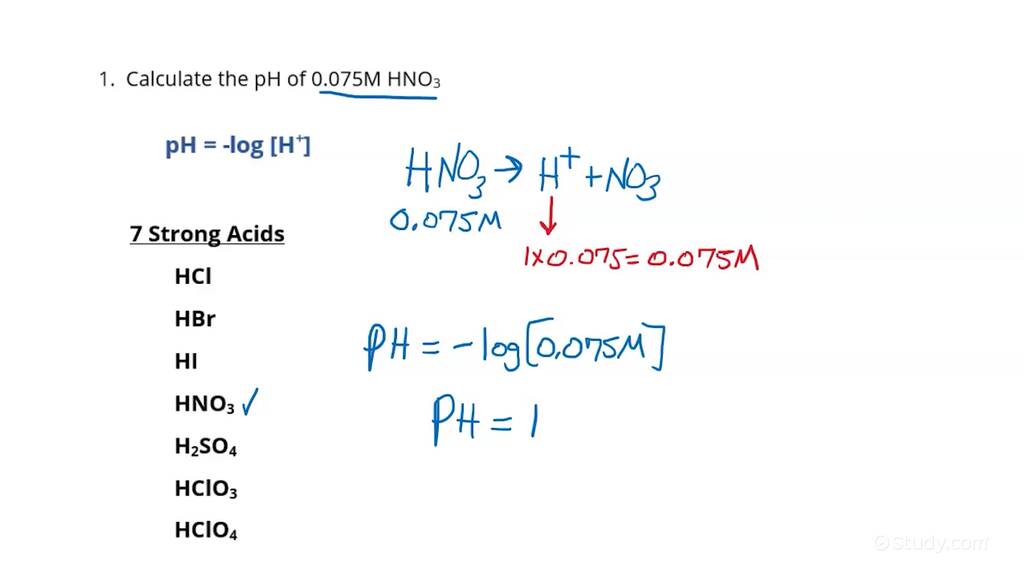 1. Calculate the pH of 0.075M HNO₃
pH = -log [H⁺]
HNO₃ → H⁺ + NO₃
0.075M
1×0.075=0.075M
7 Strong Acids
HCl
HBr
HI
HNO₃ ✓
H₂SO₄
HClO₃
HClO₄
PH = -log[0.075M]
PH = 1
Study.com